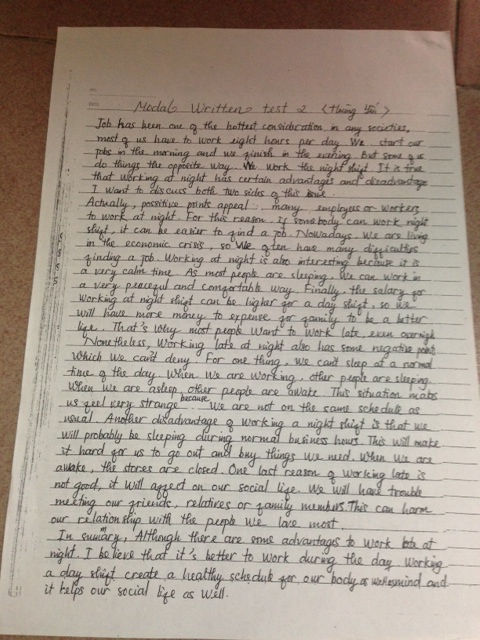 Module Written test 2 (
Job has been one of the hottest consideration in any societies,
most of us have to work eight hours per day. We start our
jobs in the morning and we finish in the evening. But some of us
do things the opposite way. We work the night shift. It is true
that working at night has certain advantages and disadvantage
I want to discuss both two sides of this
Actually, positive points appeal many employees or workers
to work at night. For this reason, if somebody can work night
shift, it can be easier to find a job. Nowadays we are living
in the economic crisis, so we often have many difficulties
finding a job. Working at night is also interesting because it is
a very calm time. As most people are sleeping. We can work in
a very pleasant and comfortable way. Finally, the salary for
working at night shift can be higher for a day shift. so we
will have more money to expense for family to be a better
life. That's why most people want to work late even overnight
Nonetheless, working late at night also has some negative points
which we can't deny. For one thing, we can't sleep at a normal
time of the day. When we are working, other people are sleeping
When we are asleep, other people are awake. This situation makes
us feel very strange because we are not on the same schedule as
usual. Another disadvantage of working a night shift is that we
will probably be sleeping during normal business hours. This will make
it hard for us to go out and buy things we need. When we are
awake, the stores are closed. One last reason of working late is
not good, it will affect on our social life. We will have trouble
meeting our friends, relatives or family members. This can harm
our relationship with the people we love most.
In sumary, Although there are some advantages to work at
night, I believe that it's better to work during the day. Working
a day shift create a healthy schedule for our body and mind and
it helps our social life as well